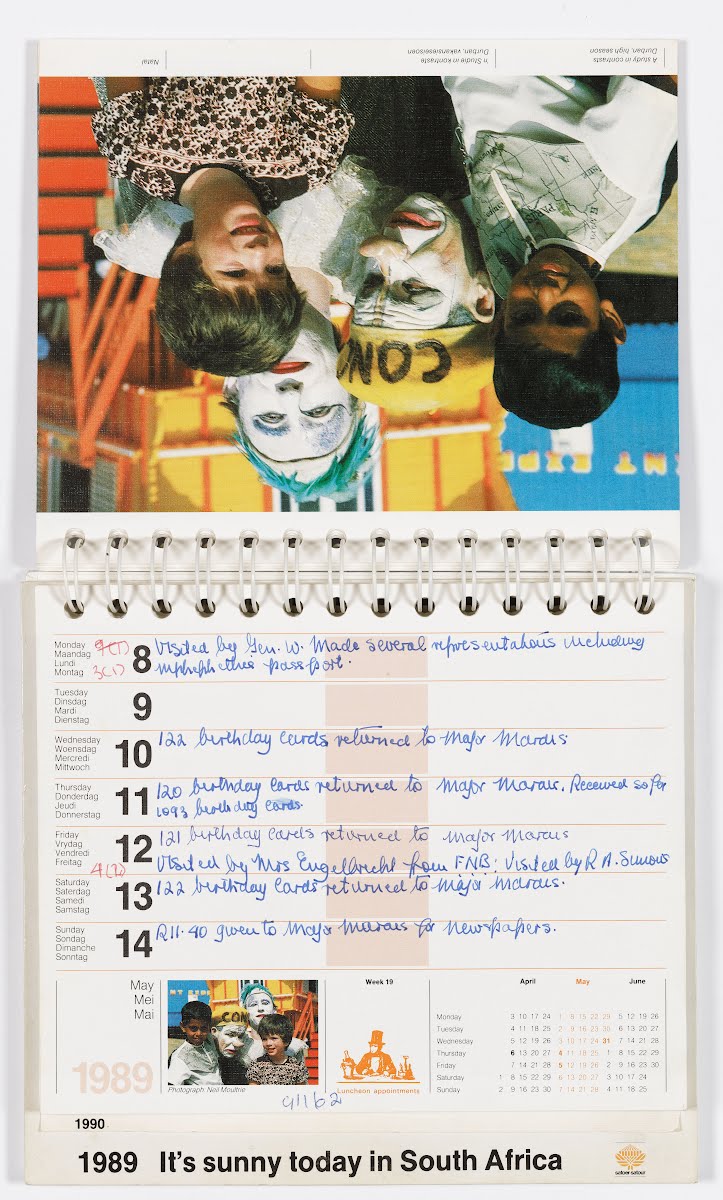 A study in contrasts
Durban, high season
'n Studie in kontraste
Durban, vakansieseisoen
Natal
CON
NT EXPE
Monday
Maandag
Lundi
Montag
8
Visited by Gen. W. Made several representations including
passport.
Tuesday
Dinsdag
Mardi
Dienstag
9
Wednesday
Woensdag
Mercredi
Mittwoch
10
122 birthday cards returned to Major Marais
Thursday
Donderdag
Jeudi
Donnerstag
11
120 birthday cards returned to Major Marais. Received so far
1093 birthday cards.
Friday
Vrydag
Vendredi
Freitag
12
121 birthday cards returned to Major Marais
Visited by Mrs Engelbrecht from FNB: Visited by R A. Simons
Saturday
Saterdag
Samedi
Samstag
13
122 birthday cards returned to major Marais.
Sunday
Sondag
Dimanche
Sonntag
14
R11.40 given to Major Marais for newspapers.
May
Mei
Mai
1989
CON
Photograph: Neil Moultrie
Week 19
Luncheon appointments
April May June
Monday 3 10 17 24 1 8 15 22 29 5 12 19 26
Tuesday 4 11 18 25 2 9 16 23 30 6 13 20 27
Wednesday 5 12 19 26 3 10 17 24 31 7 14 21 28
Thursday 6 13 20 27 4 11 18 25 1 8 15 22 29
Friday 7 14 21 28 5 12 19 26 2 9 16 23 30
Saturday 1 8 15 22 29 6 13 20 27 3 10 17 24
Sunday 2 9 16 23 30 7 14 21 28 4 11 18 25
1990
1989 It's sunny today in South Africa
satoer satour